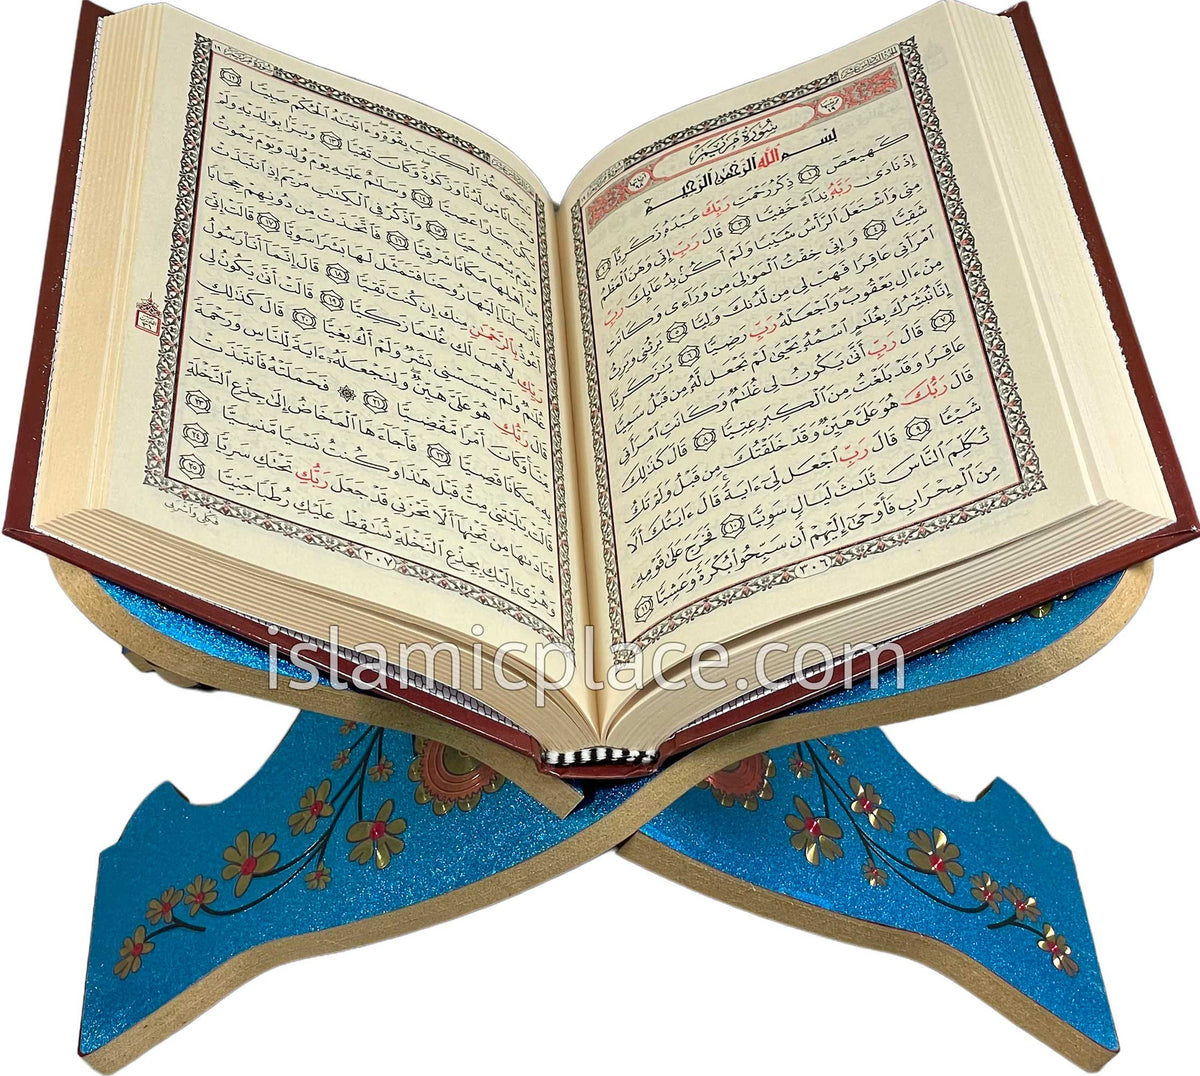 سُورَةُ مَرْيَمَ
بِسْمِ اللَّهِ الرَّحْمَٰنِ الرَّحِيمِ
كٓهيعٓصٓ ١ ذِكْرُ رَحْمَتِ رَبِّكَ عَبْدَهُ زَكَرِيَّا ٢
إِذْ نَادَىٰ رَبَّهُ نِدَآءً خَفِيًّا ٣ قَالَ رَبِّ إِنِّي وَهَنَ الْعَظْمُ
مِنِّي وَاشْتَعَلَ الرَّأْسُ شَيْبًا وَلَمْ أَكُنۢ بِدُعَآئِكَ رَبِّ
شَقِيًّا ٤ وَإِنِّي خِفْتُ الْمَوَٰلِيَ مِن وَرَآءِي وَكَانَتِ
امْرَأَتِي عَاقِرًا فَهَبْ لِي مِن لَّدُنكَ وَلِيًّا ٥ يَرِثُنِي وَيَرِثُ
مِنْ ءَالِ يَعْقُوبَ وَاجْعَلْهُ رَبِّ رَضِيًّا ٦ يَٰزَكَرِيَّآ
إِنَّا نُبَشِّرُكَ بِغُلَٰمٍ اسْمُهُ يَحْيَىٰ لَمْ نَجْعَل لَّهُ مِن قَبْلُ سَمِيًّا
٧ قَالَ رَبِّ أَنَّىٰ يَكُونُ لِي غُلَٰمٌ وَكَانَتِ امْرَأَتِي
عَاقِرًا وَقَدْ بَلَغْتُ مِنَ الْكِبَرِ عِتِيًّا ٨ قَالَ كَذَٰلِكَ
قَالَ رَبُّكَ هُوَ عَلَيَّ هَيِّنٌ وَقَدْ خَلَقْتُكَ مِن قَبْلُ وَلَمْ تَكُ
شَيْئًا ٩ قَالَ رَبِّ اجْعَل لِّي ءَايَةً قَالَ ءَايَتُكَ أَلَّا
تُكَلِّمَ النَّاسَ ثَلَٰثَ لَيَالٍ سَوِيًّا ١٠ فَخَرَجَ عَلَىٰ قَوْمِهِ
مِنَ الْمِحْرَابِ فَأَوْحَىٰٓ إِلَيْهِمْ أَن سَبِّحُوا بُكْرَةً وَعَشِيًّا ١١
٣٠٦
سُورَةُ مَرْيَمَ ١٩
يَٰيَحْيَىٰ خُذِ الْكِتَٰبَ بِقُوَّةٍ وَءَاتَيْنَٰهُ الْحُكْمَ صَبِيًّا ١٢
وَحَنَانًا مِّن لَّدُنَّا وَزَكَوٰةً وَكَانَ تَقِيًّا ١٣ وَبَرًّۢا بِوَٰلِدَيْهِ وَلَمْ
يَكُن جَبَّارًا عَصِيًّا ١٤ وَسَلَٰمٌ عَلَيْهِ يَوْمَ وُلِدَ وَيَوْمَ يَمُوتُ
وَيَوْمَ يُبْعَثُ حَيًّا ١٥ وَاذْكُرْ فِي الْكِتَٰبِ مَرْيَمَ إِذِ انتَبَذَتْ
مِنْ أَهْلِهَا مَكَانًا شَرْقِيًّا ١٦ فَاتَّخَذَتْ مِن دُونِهِمْ حِجَابًا
فَأَرْسَلْنَآ إِلَيْهَا رُوحَنَا فَتَمَثَّلَ لَهَا بَشَرًا سَوِيًّا ١٧ قَالَتْ إِنِّي
أَعُوذُ بِالرَّحْمَٰنِ مِنكَ إِن كُنتَ تَقِيًّا ١٨ قَالَ إِنَّمَآ أَنَا۠ رَسُولُ
رَبِّكِ لِأَهَبَ لَكِ غُلَٰمًا زَكِيًّا ١٩ قَالَتْ أَنَّىٰ يَكُونُ لِي
غُلَٰمٌ وَلَمْ يَمْسَسْنِي بَشَرٌ وَلَمْ أَكُ بَغِيًّا ٢٠ قَالَ كَذَٰلِكِ
قَالَ رَبُّكِ هُوَ عَلَيَّ هَيِّنٌ وَلِنَجْعَلَهُ ءَايَةً لِّلنَّاسِ وَرَحْمَةً
مِّنَّا وَكَانَ أَمْرًا مَّقْضِيًّا ٢١ ۞ فَحَمَلَتْهُ فَانتَبَذَتْ
بِهِ مَكَانًا قَصِيًّا ٢٢ فَأَجَآءَهَا الْمَخَاضُ إِلَىٰ جِذْعِ النَّخْلَةِ
قَالَتْ يَٰلَيْتَنِي مِتُّ قَبْلَ هَٰذَا وَكُنتُ نَسْيًا مَّنسِيًّا ٢٣
فَنَادَىٰهَا مِن تَحْتِهَآ أَلَّا تَحْزَنِي قَدْ جَعَلَ رَبُّكِ تَحْتَكِ سَرِيًّا ٢٤
وَهُزِّيٓ إِلَيْكِ بِجِذْعِ النَّخْلَةِ تُسَٰقِطْ عَلَيْكِ رُطَبًا جَنِيًّا ٢٥
فَكُلِي وَاشْرَبِي
٣٠٧
islamicplace.com